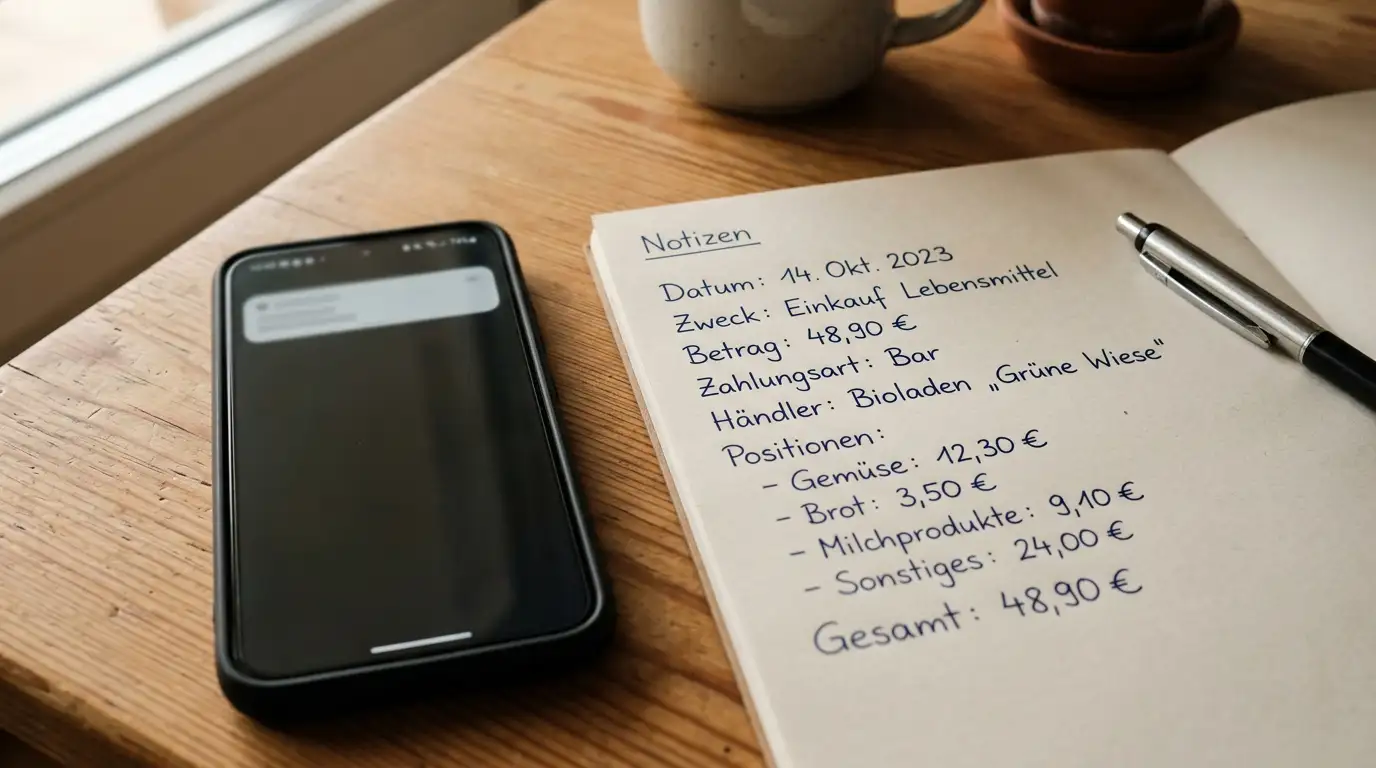 Notizen
Datum: 14. Okt. 2023
Zweck: Einkauf Lebensmittel
Betrag: 48,90 €
Zahlungsart: Bar
Händler: Bioladen „Grüne Wiese“
Positionen:
- Gemüse: 12,30 €
- Brot: 3,50 €
- Milchprodukte: 9,10 €
- Sonstiges: 24,00 €
Gesamt: 48,90 €